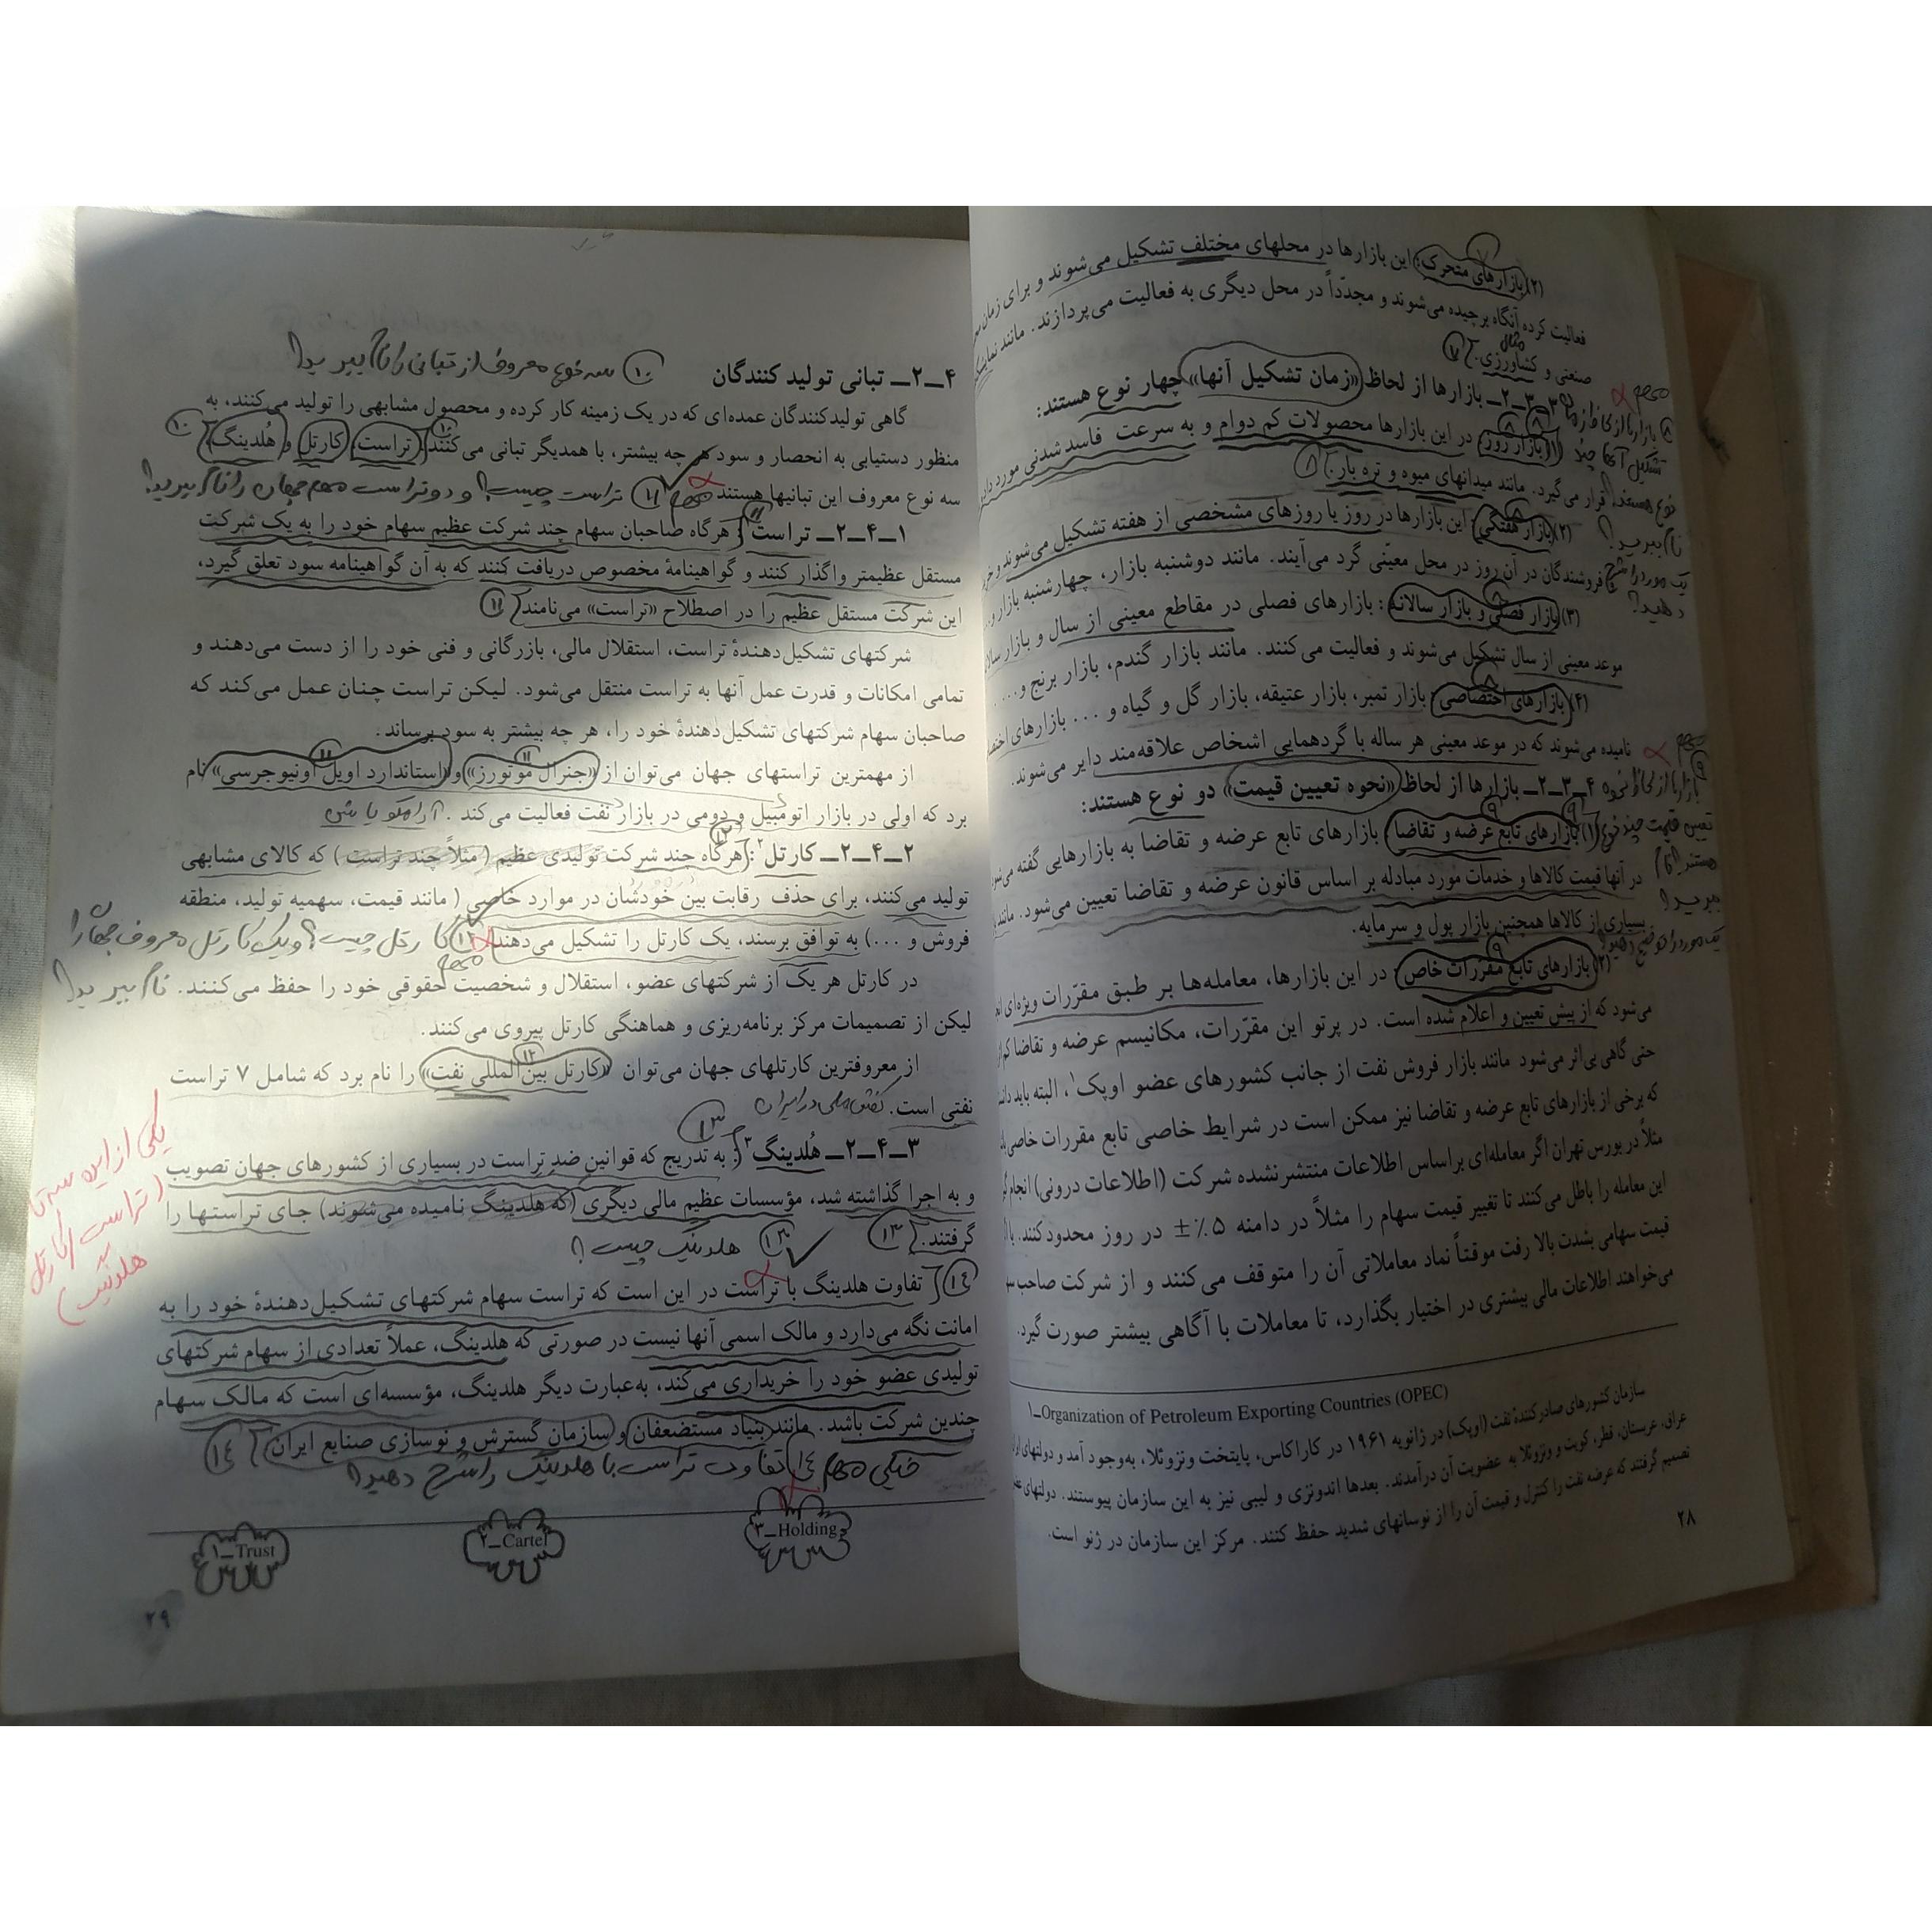 (۲) بازارهای متحرک: این بازارها در محلهای مختلف تشکیل می‌شوند و برای زمان
فعالیت کرده آنگاه برچیده می‌شوند و مجدّداً در محل دیگری به فعالیت می‌پردازند. مانند
صنعتی و کشاورزی.
۳ــ۳ــ۲ــ بازارها از لحاظ «زمان تشکیل آنها» چهار نوع هستند:
(۱) بازار روز: در این بازارها محصولات کم دوام و به سرعت فاسد شدنی مورد
قرار می‌گیرد. مانند میدانهای میوه و تره بار.
(۲) بازار هفتگی: این بازارها در روز یا روزهای مشخصی از هفته تشکیل می‌شوند و
فروشندگان در آن روز در محل معیّنی گرد می‌آیند. مانند دوشنبه بازار، چهارشنبه بازار و...
(۳) بازار فصلی و بازار سالانه: بازارهای فصلی در مقاطع معینی از سال و بازار
موعد معینی از سال تشکیل می‌شوند و فعالیت می‌کنند. مانند بازار گندم، بازار برنج و...
(۴) بازارهای اختصاصی: بازار تمبر، بازار عتیقه، بازار گل و گیاه و ... بازارهای
نامیده می‌شوند که در موعد معینی هر ساله با گردهمایی اشخاص علاقه‌مند دایر می‌شوند.
۴ــ۳ــ۲ــ بازارها از لحاظ «نحوه تعیین قیمت» دو نوع هستند:
(۱) بازارهای تابع عرضه و تقاضا: بازارهای تابع عرضه و تقاضا به بازارهایی گفته
در آنها قیمت کالاها و خدمات مورد مبادله بر اساس قانون عرضه و تقاضا تعیین می‌شود. مانند
بسیاری از کالاها همچنین بازار پول و سرمایه.
(۲) بازارهای تابع مقرّرات خاص: در این بازارها، معامله‌ها بر طبق مقرّرات ویژه‌ای
می‌شود که از پیش تعیین و اعلام شده است. در پرتو این مقرّرات، مکانیسم عرضه و تقاضا
حتی گاهی بی‌اثر می‌شود مانند بازار فروش نفت از جانب کشورهای عضو اوپک۱، البته باید
که برخی از بازارهای تابع عرضه و تقاضا نیز ممکن است در شرایط خاصی تابع مقررات خاصی
مثلاً در بورس تهران اگر معامله‌ای براساس اطلاعات منتشر نشده شرکت (اطلاعات درونی) انجام
این معامله را باطل می‌کنند تا تغییر قیمت سهام را مثلاً در دامنه ۵٪± در روز محدود کنند. یا
قیمت سهامی بشدت بالا رفت موقتاً نماد معاملاتی آن را متوقف می‌کنند و از شرکت صاحب
می‌خواهند اطلاعات مالی بیشتری در اختیار بگذارد، تا معاملات با آگاهی بیشتر صورت گیرد.
۱ــOrganization of Petroleum Exporting Countries (OPEC)
سازمان کشورهای صادرکنندهٔ نفت (اوپک) در ژانویه ۱۹۶۱ در کاراکاس، پایتخت ونزوئلا، به‌وجود آمد و دولتهای
عراق، عربستان، قطر، کویت و ونزوئلا به عضویت آن درآمدند. بعدها اندونزی و لیبی نیز به این سازمان پیوستند. دولتهای
تصمیم گرفتند که عرضه نفت را کنترل و قیمت آن را از نوسانهای شدید حفظ کنند. مرکز این سازمان در ژنو است.
۲۸
مهم
۸ بازارها از لحاظ زمان
تشکیل آنها چند
نوع هستند
نام ببرید؟
یک مورد را شرح
دهید؟
مهم
۹
بازارها از لحاظ نحوه
تعیین قیمت چند نوع
هستند نام
ببرید؟
یک مورد را توضیح دهید؟
مثال
۴ــ۲ــ تبانی تولید کنندگان ۱۰ سه نوع معروف از تبانی را نام ببرید؟
گاهی تولیدکنندگان عمده‌ای که در یک زمینه کار کرده و محصول مشابهی را تولید می‌کنند، به
منظور دستیابی به انحصار و سود هر چه بیشتر، با همدیگر تبانی می‌کنند. تراست، کارتل و هُلدینگ
سه نوع معروف این تبانیها هستند. مهم ۱۱ تراست چیست؟ و دو تراست مهم جهان را نام ببرید؟
۱ــ۴ــ۲ــ تراست۱: هرگاه صاحبان سهام چند شرکت عظیم سهام خود را به یک شرکت
مستقل عظیمتر واگذار کنند و گواهینامهٔ مخصوص دریافت کنند که به آن گواهینامه سود تعلق گیرد،
این شرکت مستقل عظیم را در اصطلاح «تراست» می‌نامند. ۱۱
شرکتهای تشکیل‌دهندهٔ تراست، استقلال مالی، بازرگانی و فنی خود را از دست می‌دهند و
تمامی امکانات و قدرت عمل آنها به تراست منتقل می‌شود. لیکن تراست چنان عمل می‌کند که
صاحبان سهام شرکتهای تشکیل‌دهندهٔ خود را، هر چه بیشتر به سود برساند.
از مهمترین تراستهای جهان می‌توان از «جنرال موتورز» و «استاندارد اویل اونیوجرسی» نام
برد که اولی در بازار اتومبیل و دومی در بازار نفت فعالیت می‌کند.
۲ــ۴ــ۲ــ کارتل۲: هرگاه چند شرکت تولیدی عظیم (مثلاً چند تراست) که کالای مشابهی
تولید می‌کنند، برای حذف رقابت بین خودشان در موارد خاصی (مانند قیمت، سهمیه تولید، منطقه
فروش و ...) به توافق برسند، یک کارتل را تشکیل می‌دهند. ۱۲ کارتل چیست؟ و یک کارتل معروف جهان را
مهم
در کارتل هر یک از شرکتهای عضو، استقلال و شخصیت حقوقی خود را حفظ می‌کنند. نام ببرید؟
لیکن از تصمیمات مرکز برنامه‌ریزی و هماهنگی کارتل پیروی می‌کنند.
از معروفترین کارتلهای جهان می‌توان «کارتل بین‌المللی نفت» را نام برد که شامل ۷ تراست
نفتی است.
۳ــ۴ــ۲ــ هُلدینگ۳: به تدریج که قوانین ضد تراست در بسیاری از کشورهای جهان تصویب
و به اجرا گذاشته شد، مؤسسات عظیم مالی دیگری (که هلدینگ نامیده می‌شوند) جای تراستها را
گرفتند. ۱۳ هلدینگ چیست؟
۱۴ تفاوت هلدینگ با تراست در این است که تراست سهام شرکتهای تشکیل‌دهندهٔ خود را به
امانت نگه می‌دارد و مالک اسمی آنها نیست در صورتی که هلدینگ، عملاً تعدادی از سهام شرکتهای
تولیدی عضو خود را خریداری می‌کند، به‌عبارت دیگر هلدینگ، مؤسسه‌ای است که مالک سهام
چندین شرکت باشد. مانند بنیاد مستضعفان و سازمان گسترش و نوسازی صنایع ایران. ۱۴
خیلی مهم ۱۴ تفاوت تراست با هلدینگ را شرح دهید؟
یکی از این سه تا
(تراست / کارتل
هلدینگ)
۱ــTrust
۲ــCartel
۳ــHolding
۲۹